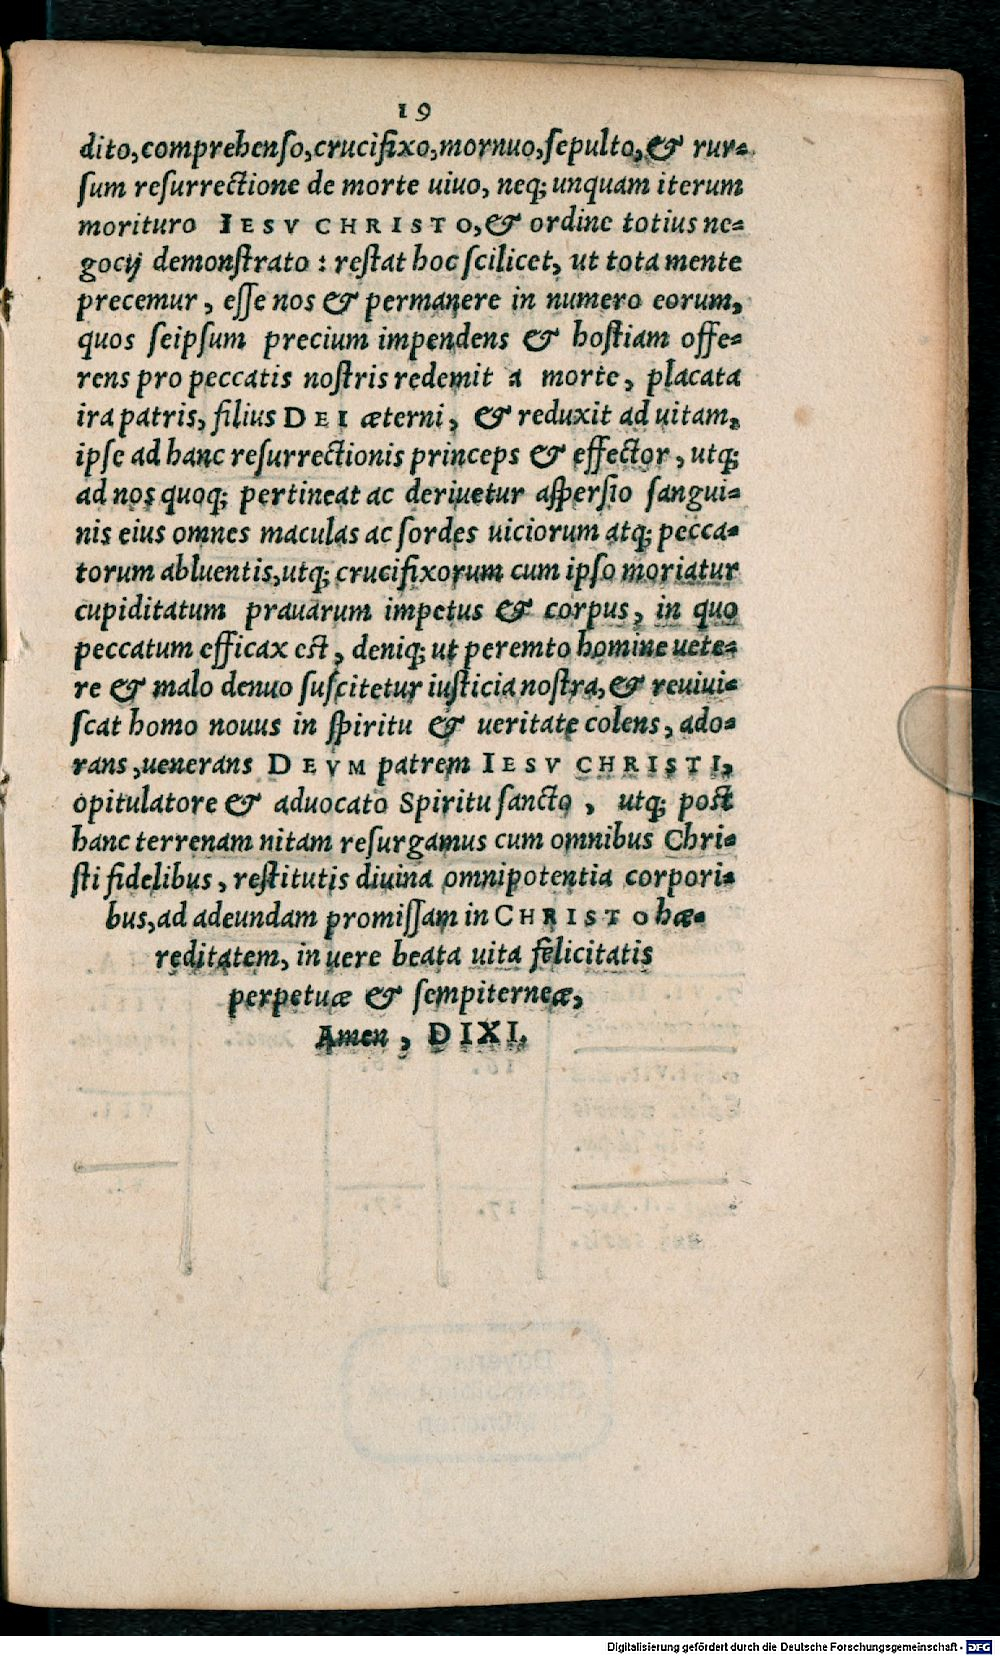 19
dito, comprehenso, crucifixo, mornuo, sepulto, & rur-
sum resurrectione de morte uiuo, neq; unquam iterum
morituro IESV CHRISTO, & ordine totius ne-
gocij demonstrato : restat hoc scilicet, ut tota mente
precemur, esse nos & permanere in numero eorum,
quos seipsum precium impendens & hostiam offe-
rens pro peccatis nostris redemit a morte, placata
ira patris, filius DEI æterni, & reduxit ad uitam,
ipse ad hanc resurrectionis princeps & effector, utq;
ad nos quoq; pertineat ac deriuetur aspersio sangui-
nis eius omnes maculas ac sordes uiciorum atq; pecca-
torum abluentis, utq; crucifixorum cum ipso moriatur
cupiditatum prauarum impetus & corpus, in quo
peccatum efficax est, deniq; ut peremto homine uete-
re & malo denuo suscitetur iusticia nostra, & reuiui-
scat homo nouus in spiritu & ueritate colens, ado-
rans, uenerans DEVM patrem IESV CHRISTI,
opitulatore & aduocato Spiritu sancto, utq; post
hanc terrenam nitam resurgamus cum omnibus Chri-
sti fidelibus, restitutis diuina omnipotentia corpori-
bus, ad adeundam promissam in CHRISTO hæ-
reditatem, in uere beata uita felicitatis
perpetuæ & sempiterneæ,
Amen, DIXI.
Digitalisierung gefördert durch die Deutsche Forschungsgemeinschaft - DFG